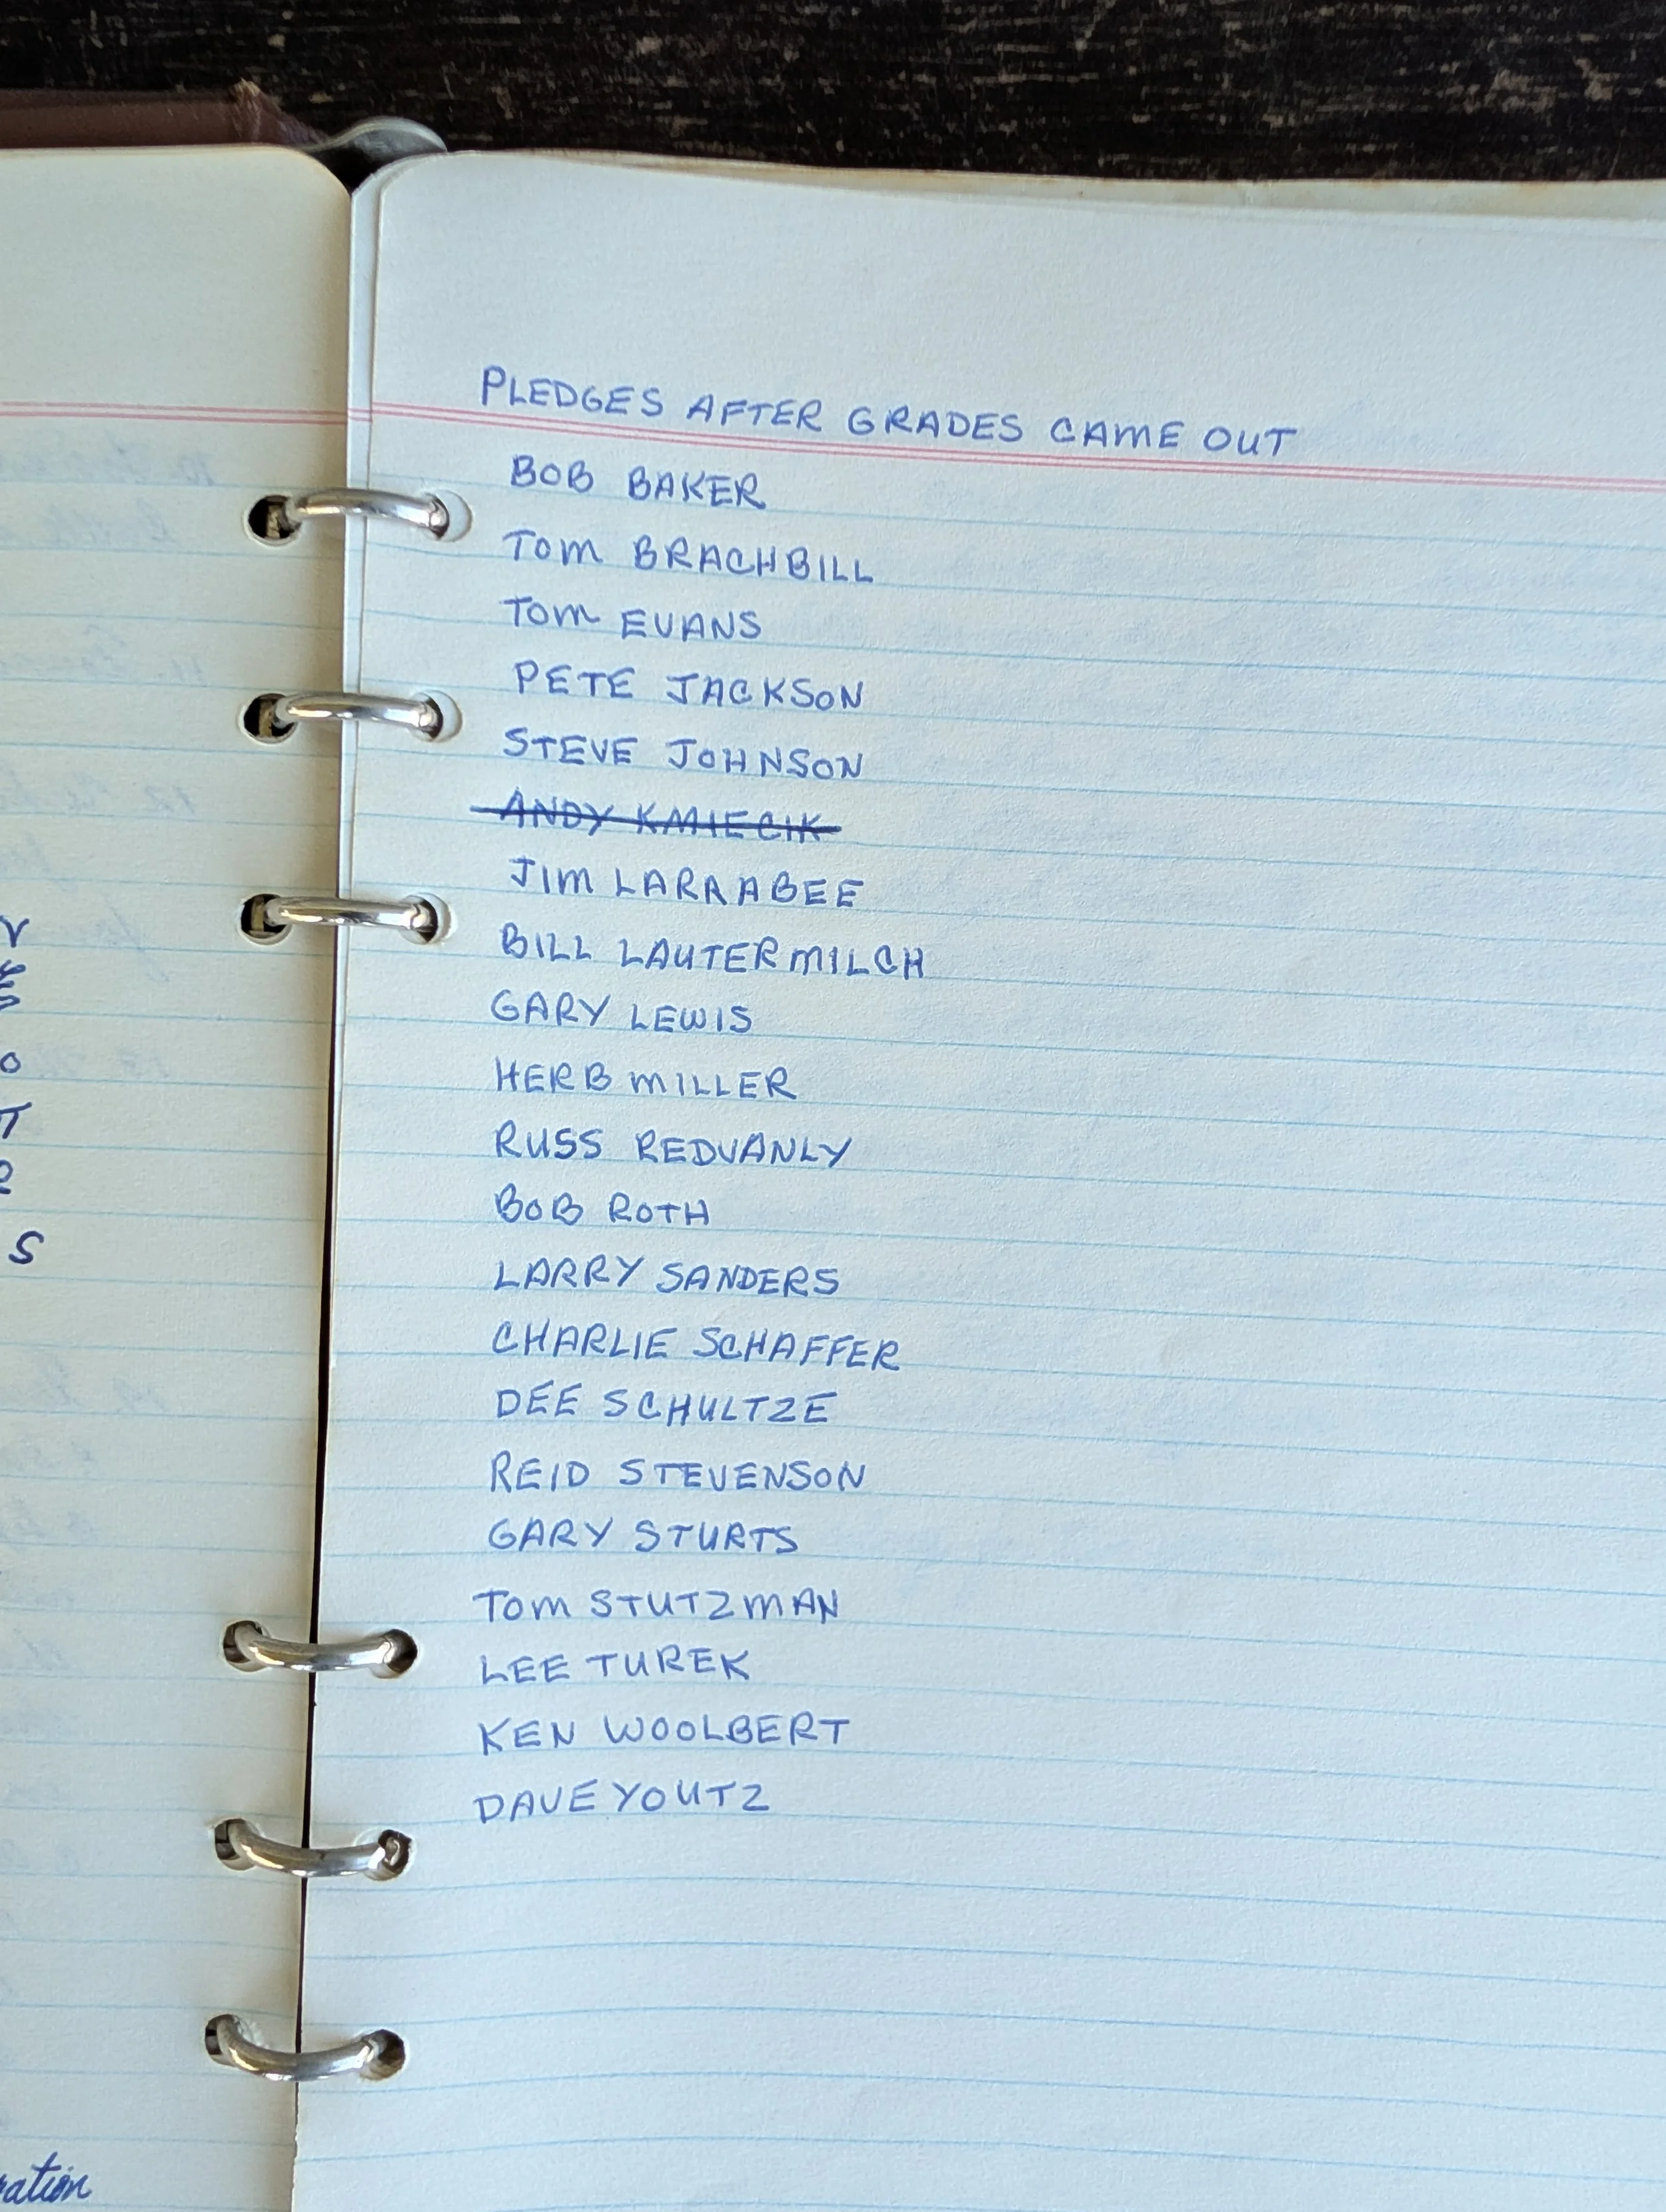 PLEDGES AFTER GRADES CAME OUT
BOB BAKER
TOM BRACHBILL
TOM EVANS
PETE JACKSON
STEVE JOHNSON
ANDY KMIECIK
JIM LARRABEE
BILL LAUTERMILCH
GARY LEWIS
HERB MILLER
RUSS REDVANLY
BOB ROTH
LARRY SANDERS
CHARLIE SCHAFFER
DEE SCHULTZE
REID STEVENSON
GARY STURTS
TOM STUTZMAN
LEE TUREK
KEN WOOLBERT
DAVE YOUTZ